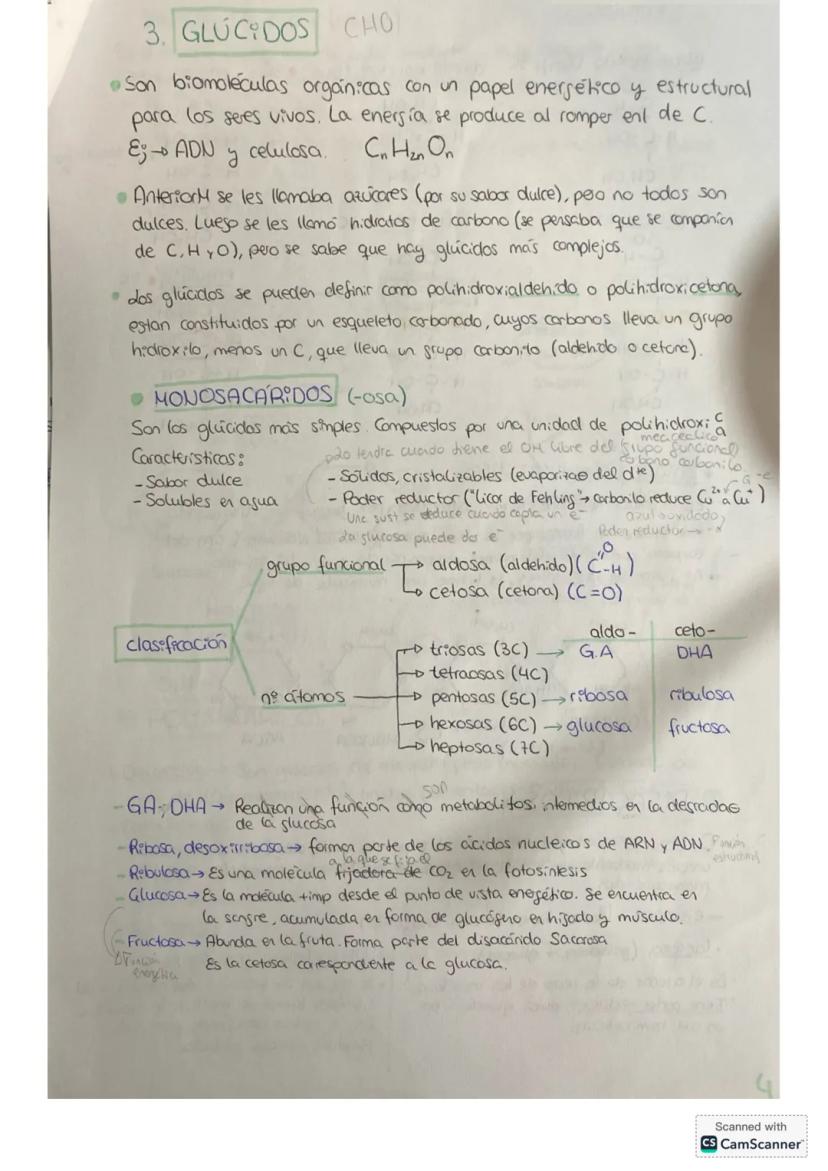 3. GLÚCiDOS CHO
• Son biomoléculas orgánicas con un papel energético y estructural
para los seres vivos. La energía se produce al romper enl de C.
Ej → ADN y celulosa. CnH2nOn
• AnteriorM se les llamaba azúcares (por su sabor dulce), pero no todos son
dulces. Luego se les llamó hidratos de carbono (se pensaba que se componían
de C, H y O), pero se sabe que hay glúcidos más complejos.
• Los glúcidos se pueden definir como polihidroxialdehido o polihidroxicetona,
estan constituidos por un esqueleto carbonado, cuyos carbonos lleva un grupo
hidroxilo, menos un C, que lleva un grupo carbonilo (aldehido o cetona).
• MONOSACÁRiDOS (-osa)
Son los glúcidos más simples. Compuestos por una unidad de polihidroxi c a
lo tendra cuando tiene el OH libre del grupo funcional
carbono carbonilo
Características:
- Sabor dulce
- Solubles en agua
- Sólidos, cristalizables (
- Poder reductor ("Licor de Fehling" → carbonilo reduce Cu2+ a Cu+)
Una sust se reduce cuando capta un e-
La glucosa puede da e-
Poder reductor →
clasificación
grupo funcional → aldosa (aldehido) (C=O -H)
→ cetosa (cetona) (C=O)
aldo- ceto-
nº átomos → triosas (3C) → G.A DHA
→ tetraosas (4C)
→ pentosas (5C) → ribosa ribulosa
→ hexosas (6C) → glucosa fructosa
→ heptosas (7C)
- GA; DHA → Realizan una función como metabolitos intemedios en la
son
de la glucosa
- Ribosa, → forman parte de los ácidos nucleicos de ARN y ADN. Función estructural
- Ribulosa → Es una molécula fijadora de CO2 en la fotosíntesis
a la que se fija el
- Glucosa → Es la molécula +imp desde el punto de vista energético. Se encuentra en
la sangre, acumulada en forma de glucógeno en hígado y músculo.
- Fructosa → Abunda en la fruta. Forma parte del disacárido Sacarosa
Es la cetosa correspondente a la glucosa.
Función energética
4
Scanned with
CS CamScanner